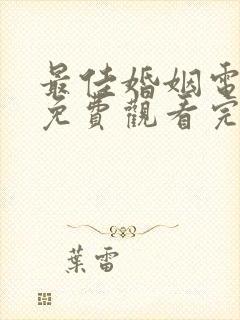 最佳婚姻電
免費觀看完
葉雷